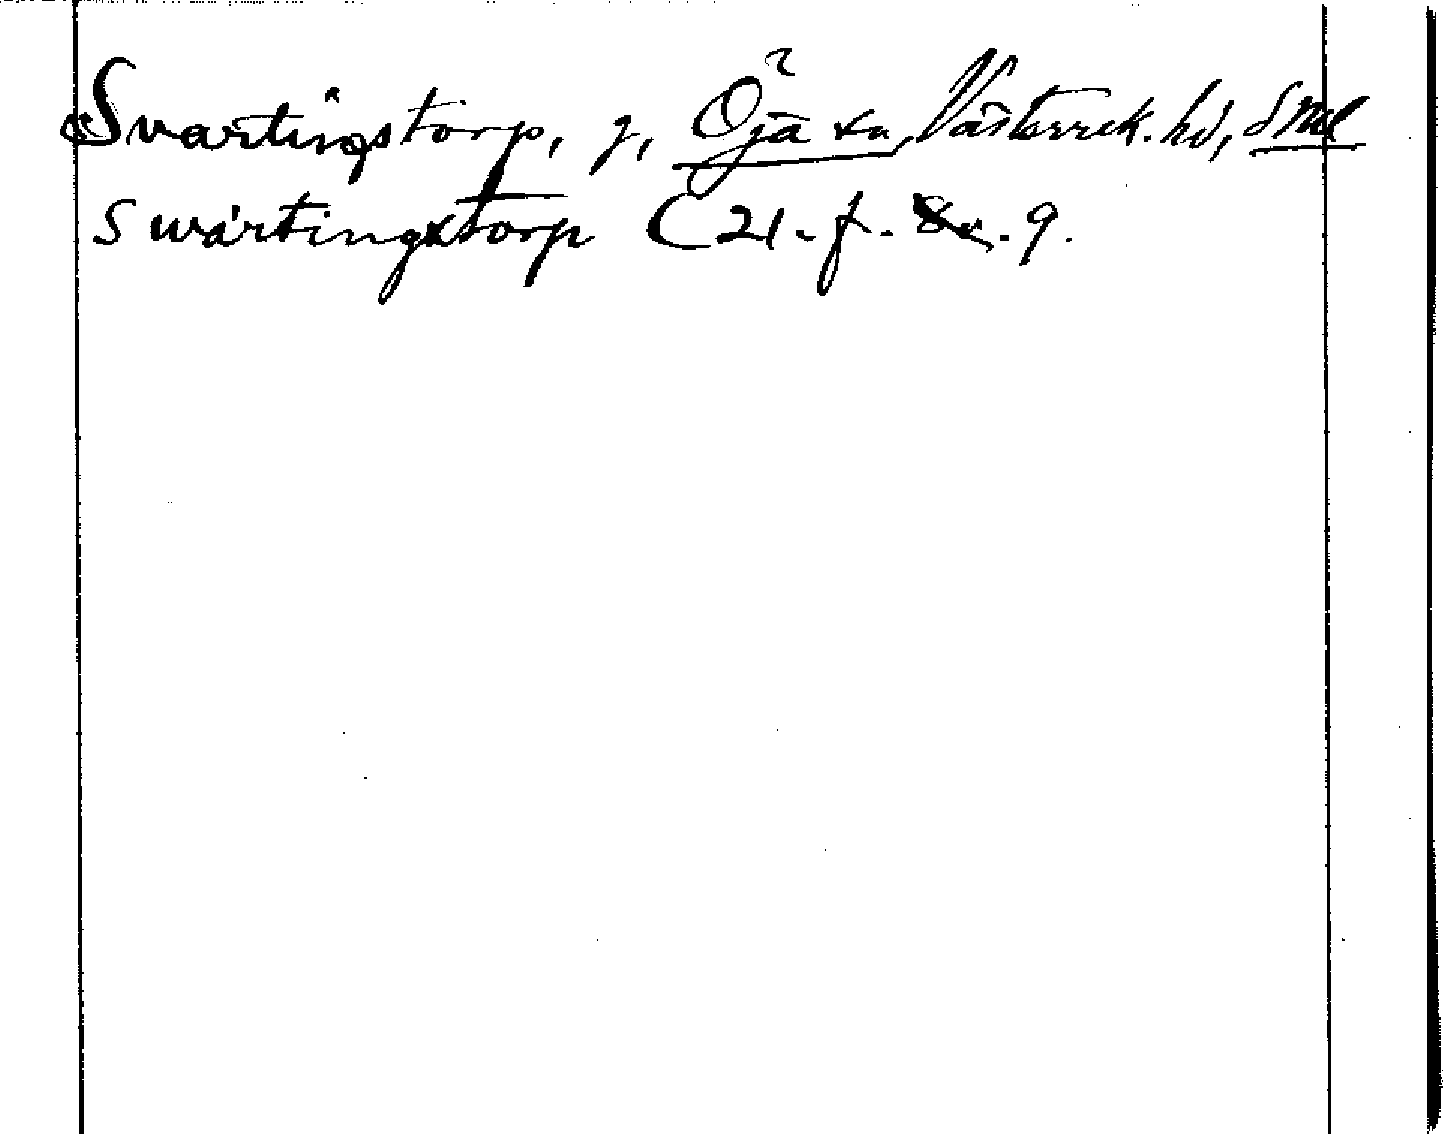 Svartingstorp, g, Öja sn, Västerrek. hd, Sml
Swärtingxtorp C 21. f. 9.